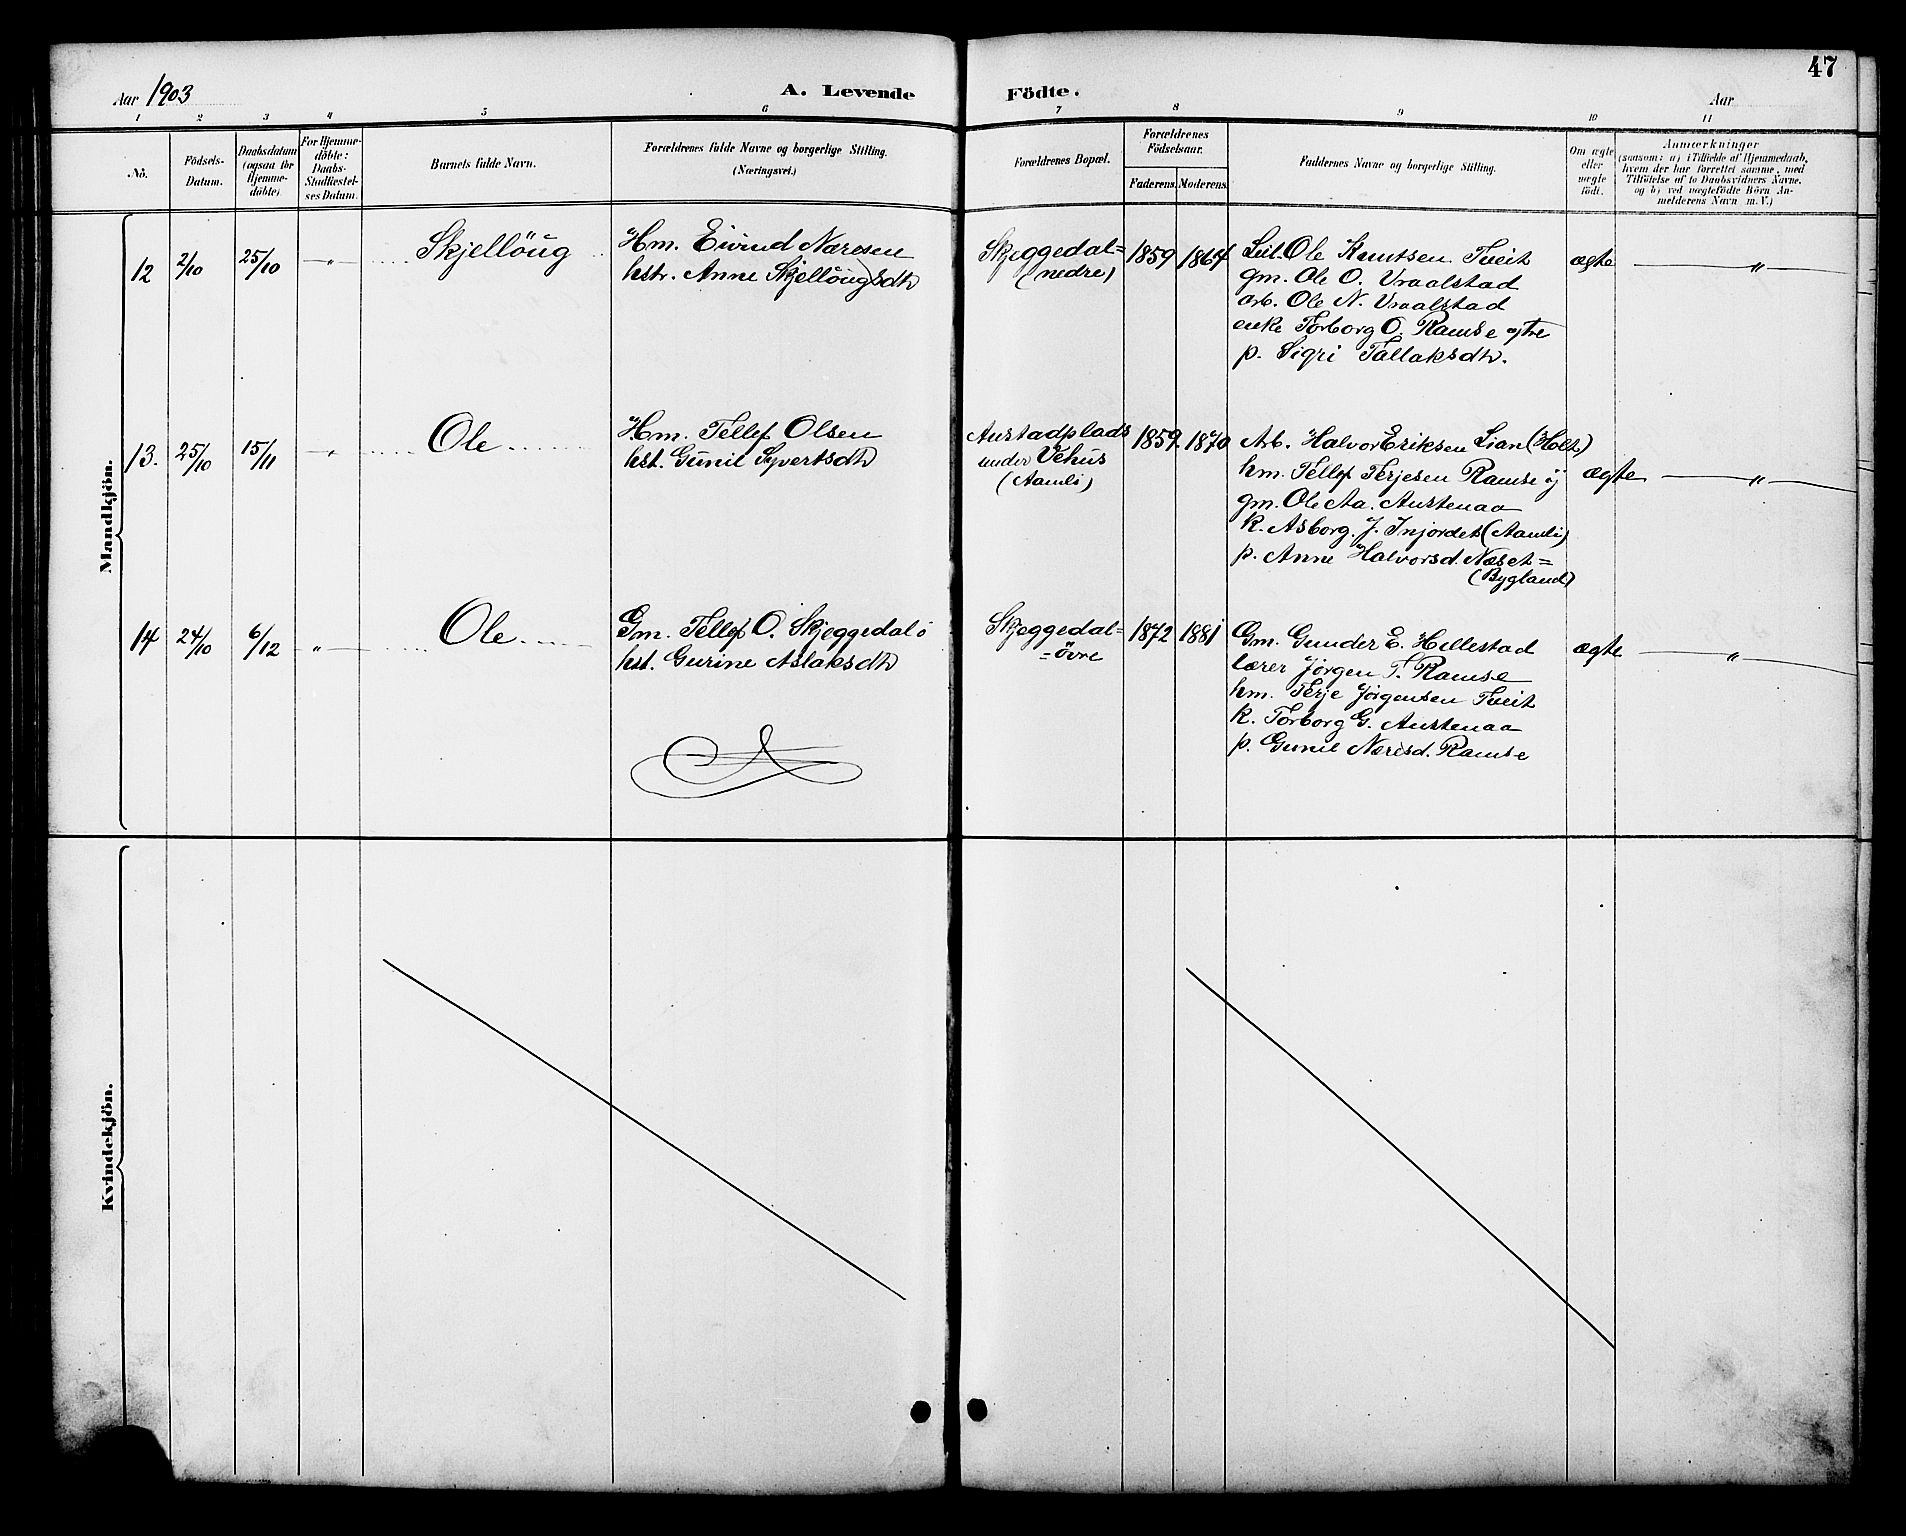 Aar 1903
A. Levende Födte.
Aar
47
1 2 3 4 5 6 7 8 9 10 11
No.
Födsels-Datum.
Daabsdatum (ogsaa for Hjemmedöbte).
For Hjemmedöbte: Daabs-Stadfæstelses Datum.
Barnets fulde Navn.
Forældrenes fulde Navne og borgerlige Stilling.
(Næringsvei.)
Forældrenes Bopæl.
Forældrenes Födselsaar.
Faderens. Moderens.
Faddernes Navne og borgerlige Stilling.
Om ægte eller uægte födt.
Anmærkninger
(saasom: a) i Tilfælde af Hjemmedaab,
hvem der har forrettet samme, med
Tilföielse af to Daabsvidners Navne,
og b) ved uægtefödte Börn An-
melderens Navn m. V.)
Mandkjön.
12 2/10 25/10 - „ - Skjellöug
Hm. Eivind Næresen
hstr. Anne Skjellöugsdtr
Skjeggedal=
(nedre)
1859 1864
Leil. Ole Knutsen Tveit
gm. Ole O. Vraalstad
arb. Ole N. Vraalstad
enke Torborg O. Ramse østre
p. Sigri Tallaksdtr.
ægte
„
13. 25/10 15/11 - „ - Ole
Hm. Tellef Olsen
hst. Gunil Syvertsdtr
Austadplads
under Vehus
(Aamli)
1859. 1870
Arb. Halvor Eriksen Lian (Holt)
hm. Tellef Terjesen Ramse
gm. Ole Aa. Austenaa
k. Asborg J. Injordet (Aamli)
p. Anne Halvorsd. Næset=
(Bygland)
ægte
„
14 24/10 6/12 „ Ole
Gm. Tellef O. Skjeggedal ö
hst. Gurine Aslaksdtr
Skjeggedal=
=övre
1872 1881
Gm. Gunder E. Hillestad
lærer Jörgen T. Ramse
hm. Terje Jörgensen Tveit
k. Torborg G. Austenaa
p. Gunil Nærisd. Ramse
ægte
„
Kvindekjön.